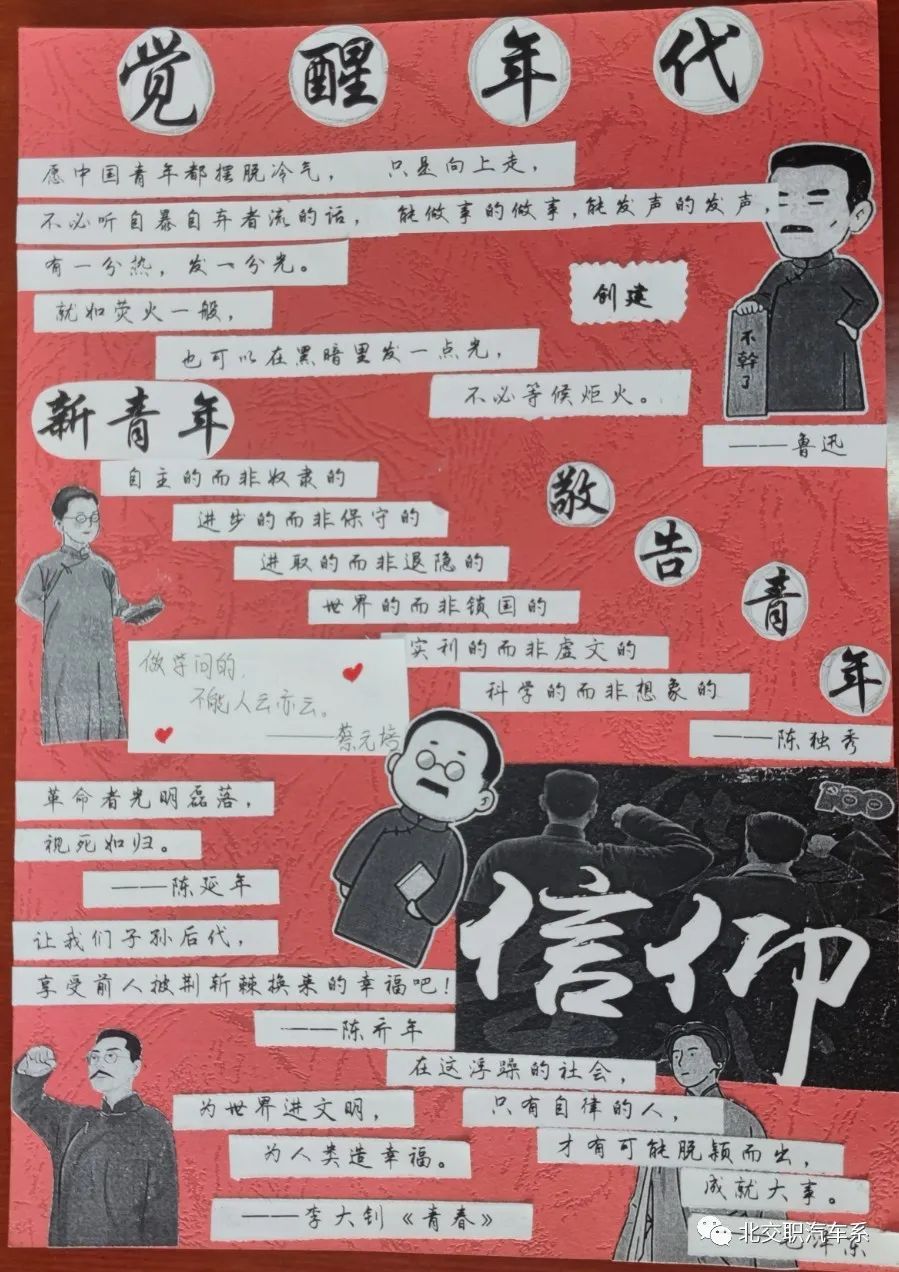 觉醒年代
愿中国青年都摆脱冷气， 只是向上走，
不必听自暴自弃者流的话， 能做事的做事，能发声的发声，
有一分热，发一分光。
创建
就如荧火一般，
也可以在黑暗里发一点光，
不幹了
不必等候炬火。
——鲁迅
新青年
自主的而非奴隶的
敬告青年
进步的而非保守的
进取的而非退隐的
世界的而非锁国的
实利的而非虚文的
科学的而非想象的
——陈独秀
做学问的，
不能人云亦云。
——蔡元培
100
革命者光明磊落，
视死如归。
——陈延年
信仰
让我们子孙后代，
享受前人披荆斩棘换来的幸福吧！
——陈乔年
在这浮躁的社会，
为世界进文明，
只有自律的人，
为人类造幸福。
才有可能脱颖而出，
成就大事。
——李大钊《青春》
北交职汽车系